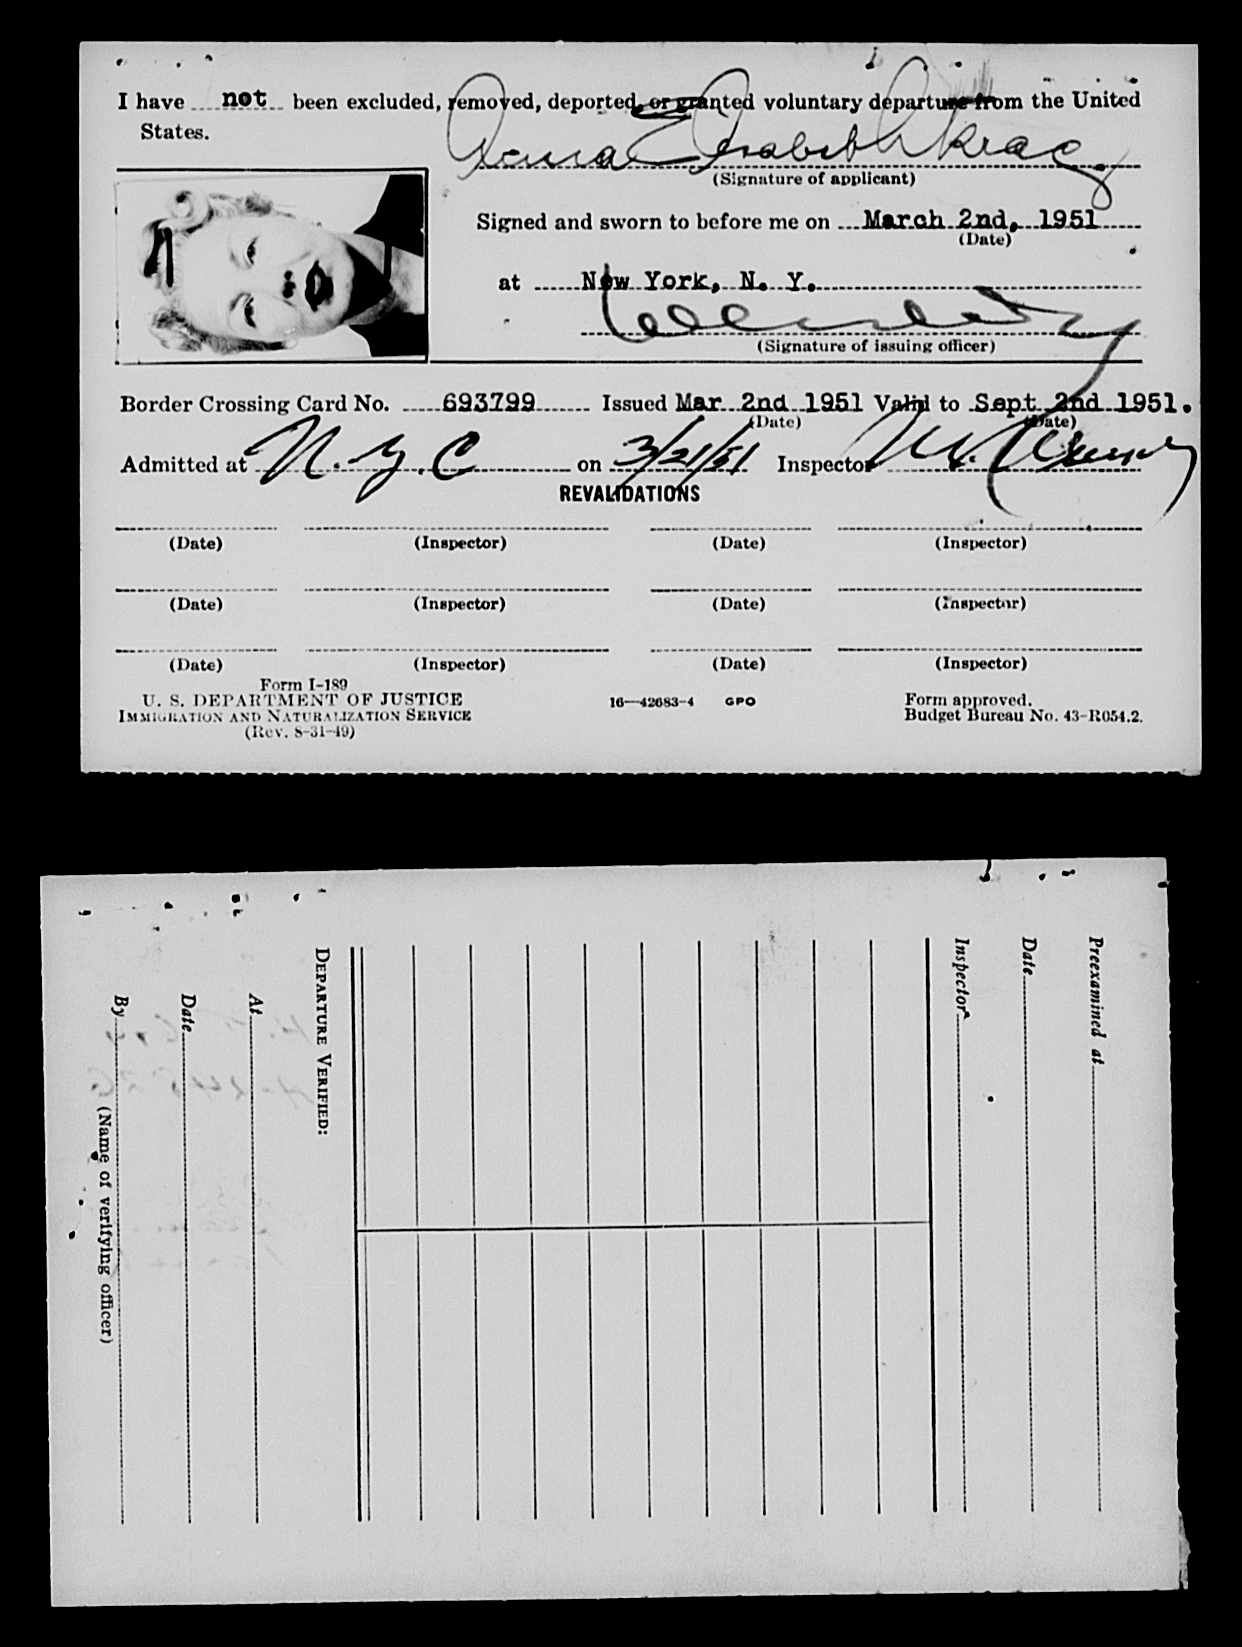 I have not been excluded, removed, deported, or granted voluntary departure from the United
States.
(Signature of applicant)
Signed and sworn to before me on March 2nd, 1951
(Date)
at New York, N. Y.
(Signature of issuing officer)
Border Crossing Card No. 693799 Issued Mar 2nd 1951 Valid to Sept 2nd 1951.
(Date) (Date)
Admitted at N.Y.C on 3/21/51 Inspector
REVALIDATIONS
(Date) (Inspector) (Date) (Inspector)
(Date) (Inspector) (Date) (Inspector)
(Date) (Inspector) (Date) (Inspector)
Form I-189
U. S. DEPARTMENT OF JUSTICE 16—42683-4 GPO Form approved.
IMMIGRATION AND NATURALIZATION SERVICE Budget Bureau No. 43-R054.2.
(Rev. 8-31-49)
Preexamined at
Date
Inspector
DEPARTURE VERIFIED:
At
Date
By
(Name of verifying officer)